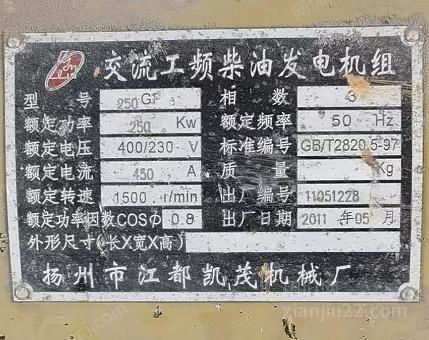 交流工频柴油发电机组
型 号 250GF 相 数 3
额定功率 250 Kw 额定频率 50 Hz
额定电压 400/230 V 标准编号 GB/T2820.5-97
额定电流 450 A 质 量 Kg
额定转速 1500 r/min 出厂编号 11051228
额定功率因数COSΦ 0.8 出厂日期 2011 年05 月
外形尺寸(长X宽X高)
扬州市江都凯茂机械厂
xianjiu22.com